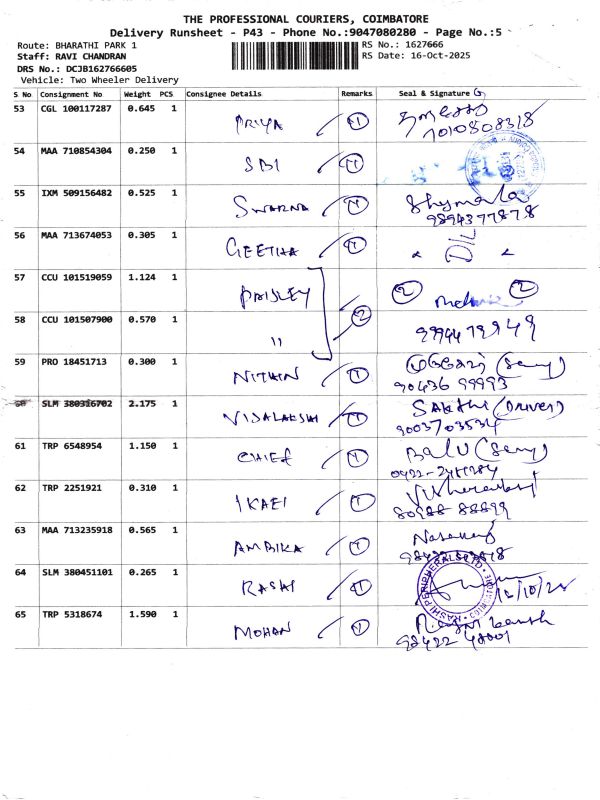 THE PROFESSIONAL COURIERS, COIMBATORE
Delivery Runsheet - P43 - Phone No.:9047080280 - Page No.:5
Route: BHARATHI PARK 1
RS No.: 1627666
Staff: RAVI CHANDRAN
RS Date: 16-Oct-2025
DRS No.: DCJB162766605
Vehicle: Two Wheeler Delivery
S No Consignment No Weight PCS Consignee Details Remarks Seal & Signature
53 CGL 100117287 0.645 1 PRIYA 1
7010808318
54 MAA 710854304 0.250 1 SBI 1
55 IXM 509156482 0.525 1 SWARNA 1 Shymala
9894377878
56 MAA 713674053 0.305 1 GEETHA 1 D/L
57 CCU 101519059 1.124 1 PAISLEY 2 2 2
58 CCU 101507900 0.570 1 "
9994479949
59 PRO 18451713 0.300 1 NITHIN 1 (Sery)
90436 99993
60 SLM 380316702 2.175 1 VISALAKSHI 1 SAKTHI (DRIVER)
9003703534
61 TRP 6548954 1.150 1 CHIEF 1 BALU (Sery)
62 TRP 2251921 0.310 1 IKAEI 1
80988 88899
63 MAA 713235918 0.565 1 AMBIKA 1
64 SLM 380451101 0.265 1 RASHI 1 RASHI PERIPHERALS LTD COIMBATORE
65 TRP 5318674 1.590 1 MOHAN 1
98422 42001